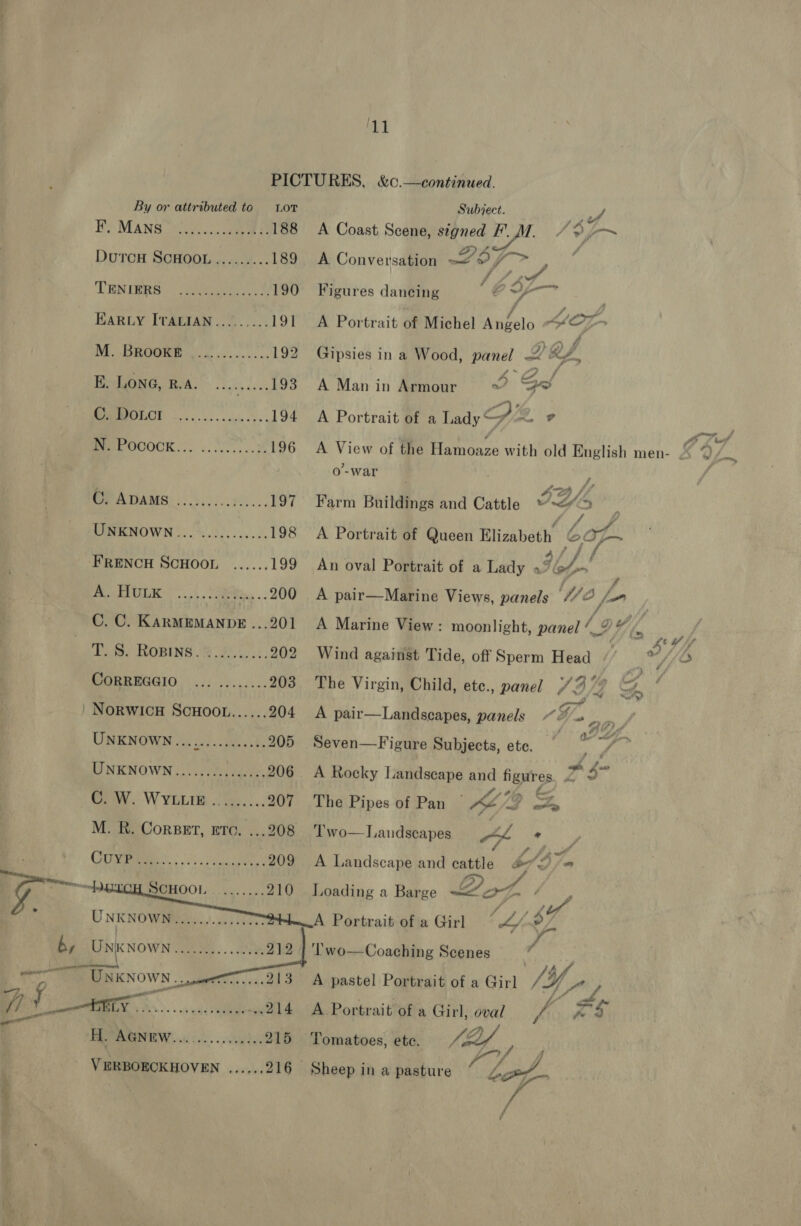 11
PICTURES, &c.—continued.
By or attributed to LOT Subject.
F. MANS ............... 188 A Coast Scene, signed F. M.
DUTCH SCHOOL ......... 189 A Conversation
TENIERS ............... 190 Figures dancing
EARLY ITALIAN ......... 191 A Portrait of Michel Angelo
M. BROOKE ............. 192 Gipsies in a Wood, panel
E. LONG, R.A. ......... 193 A Man in Armour
C. DOLCI .............. 194 A Portrait of a Lady
N. POCOCK... .......... 196 A View of the Hamoaze with old English men-
o'-war
C. ADAMS .............. 197 Farm Buildings and Cattle
UNKNOWN... ............ 198 A Portrait of Queen Elizabeth
FRENCH SCHOOL ...... 199 An oval Portrait of a Lady
A. HULK ............... 200 A pair—Marine Views, panels
C. C. KARMEMANDE ... 201 A Marine View: moonlight, panel
T. S. ROBINS .......... 202 Wind against Tide, off Sperm Head
CORREGGIO ... ........ 203 The Virgin, Child, etc., panel
NORWICH SCHOOL ...... 204 A pair—Landscapes, panels
UNKNOWN ............... 205 Seven—Figure Subjects, etc.
UNKNOWN ............... 206 A Rocky Landscape and figures
C. W. WYLLIE ......... 207 The Pipes of Pan
M. R. CORBET, ETC. ... 208 Two—Landscapes
CUYP .................. 209 A Landscape and cattle
DUTCH SCHOOL ....... 210 Loading a Barge
UNKNOWN ............... 211 A Portrait of a Girl
by UNKNOWN ............... 212 Two—Coaching Scenes
UNKNOWN ............... 213 A pastel Portrait of a Girl
ELY ................... 214 A Portrait of a Girl, oval
H. AGNEW .............. 215 Tomatoes, etc.
VERBOECKHOVEN ...... 216 Sheep in a pasture